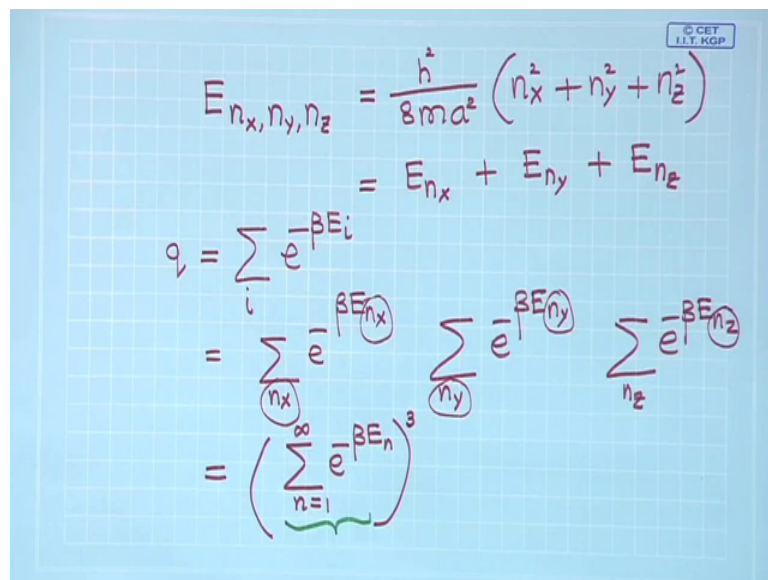 © CET
I.I.T. KGP
E_{n_x,n_y,n_z} = \frac{h^2}{8ma^2} (n_x^2 + n_y^2 + n_z^2)
= E_{n_x} + E_{n_y} + E_{n_z}
q = \sum_i e^{-βE_i}
= \sum_{n_x} e^{-βE_{n_x}} \sum_{n_y} e^{-βE_{n_y}} \sum_{n_z} e^{-βE_{n_z}}
= (\sum_{n=1}^{∞} e^{-βE_n})^3